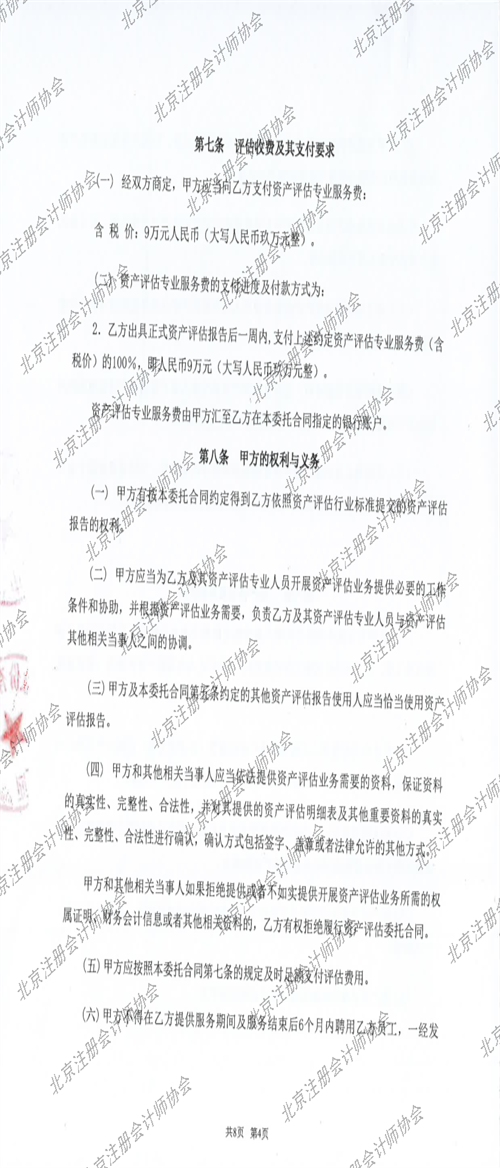 第七条 评估收费及其支付要求
(一) 经双方商定，甲方应当向乙方支付资产评估专业服务费：
含 税 价：9万元人民币（大写人民币玖万元整）。
(二) 资产评估专业服务费的支付进度及付款方式为：
2. 乙方出具正式资产评估报告后一周内，支付上述约定资产评估专业服务费（含
税价）的100%，即人民币9万元（大写人民币玖万元整）。
资产评估专业服务费由甲方汇至乙方在本委托合同指定的银行账户。
第八条 甲方的权利与义务
(一) 甲方有按本委托合同约定得到乙方依照资产评估行业标准提交的资产评估
报告的权利。
(二) 甲方应当为乙方及其资产评估专业人员开展资产评估业务提供必要的工作
条件和协助，并根据资产评估业务需要，负责乙方及其资产评估专业人员与资产评估
其他相关当事人之间的协调。
(三) 甲方及本委托合同第五条约定的其他资产评估报告使用人应当恰当使用资产
评估报告。
(四) 甲方和其他相关当事人应当依法提供资产评估业务需要的资料，保证资料
的真实性、完整性、合法性，并对其提供的资产评估明细表及其他重要资料的真实
性、完整性、合法性进行确认，确认方式包括签字、盖章或者法律允许的其他方式。
甲方和其他相关当事人如果拒绝提供或者不如实提供开展资产评估业务所需的权
属证明、财务会计信息或者其他相关资料的，乙方有权拒绝履行资产评估委托合同。
(五) 甲方应按照本委托合同第七条的规定及时足额支付评估费用。
(六) 甲方不得在乙方提供服务期间及服务结束后6个月内聘用乙方员工，一经发
共8页 第4页
北京注册会计师协会